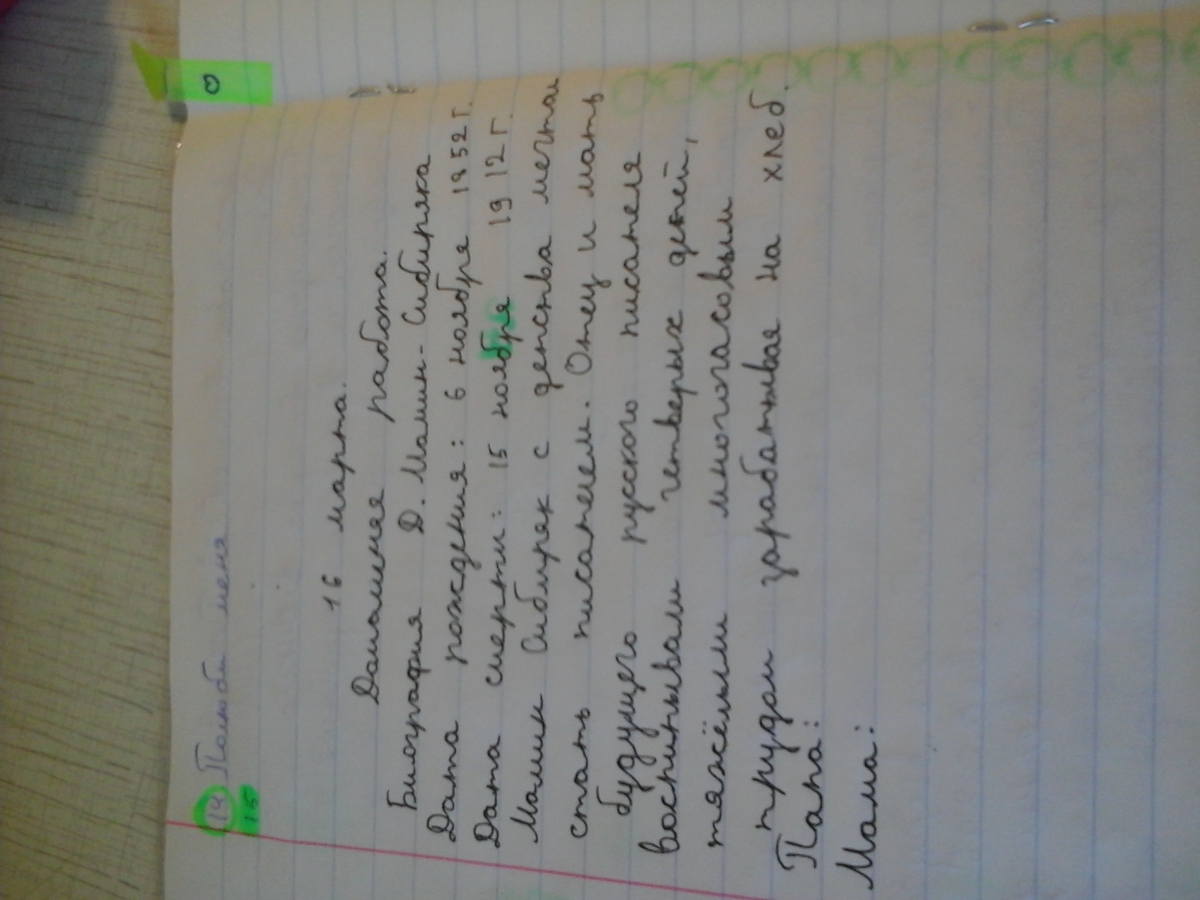 14 Полюби меня
15
16 марта.
Домашняя работа.
Биография Д. Мамин-Сибиряка
Дата рождения: 6 ноября 1852 г.
Дата смерти: 15 ноября 19 12 г.
Мамин Сибиряк с детства мечтал
стать писателем. Отец и мать
будущего русского писателя
воспитывали четверых детей,
тяжёлым многочасовым
трудом зарабатывая на хлеб.
Папа:
Мама: